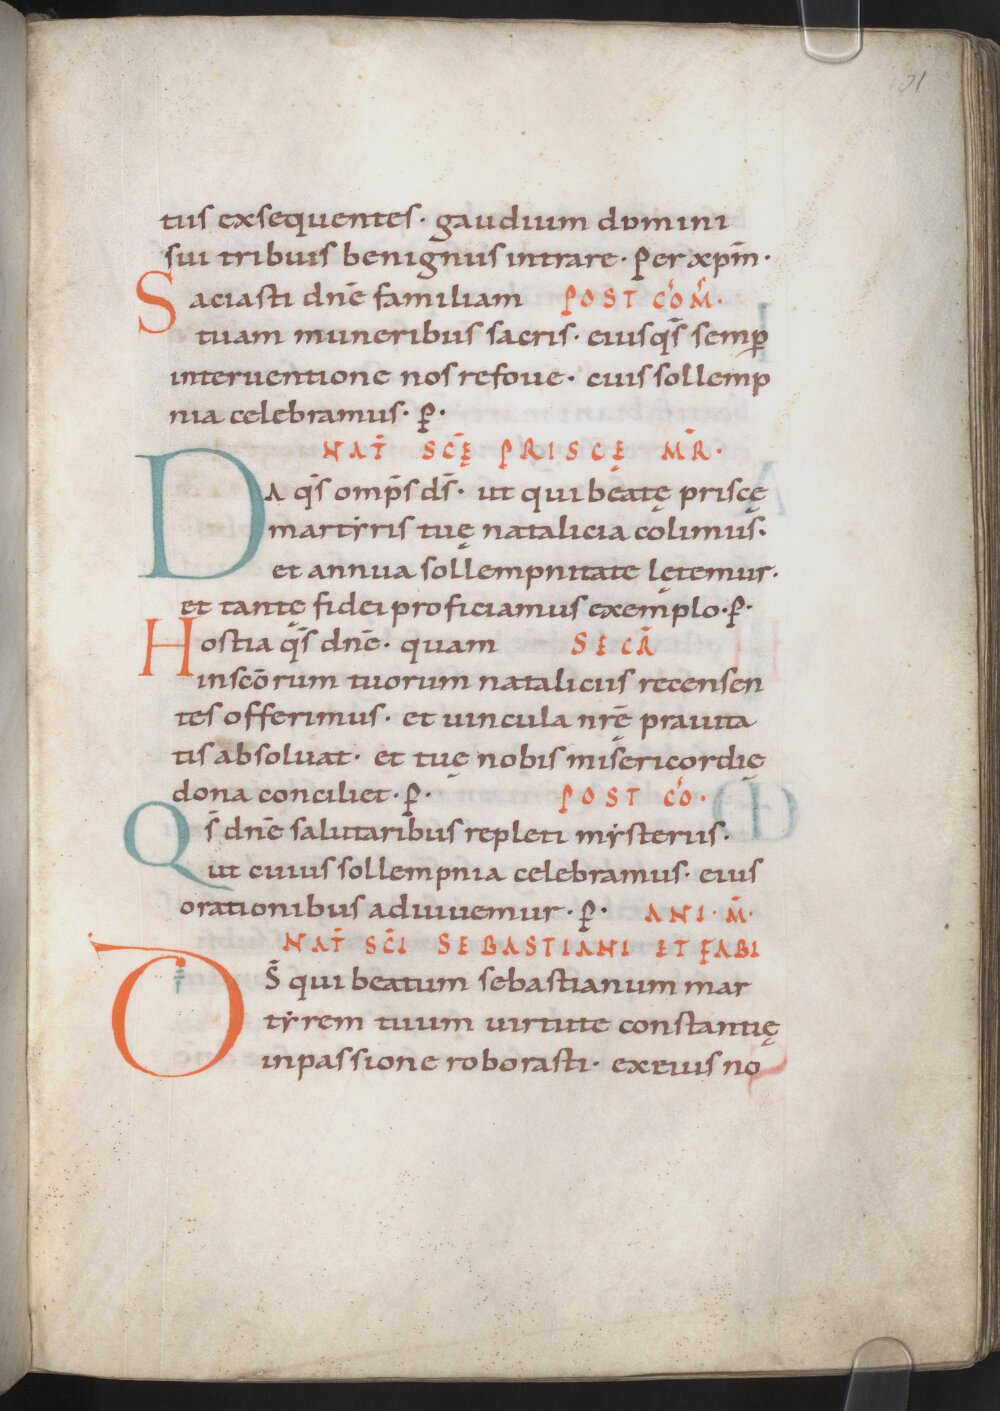 21
tus exsequentes· gaudium domini
sui tribuis benignus intrare· Per xp̄m·
Saciasti dnē familiam POST COM̄·
tuam muneribus sacris· eiusqs̄ semp̄
interuentione nos refoue· cuius sollemp
nia celebramus· P̄·
NAT̄ SC̄Ę PRISCĘ M̄R·
DA qs̄ omps̄ ds̄· ut qui beatę priscę
martẏris tuę natalicia colimus·
et annua sollempnitate lętemur·
et tantę fidei proficiamus exemplo· P̄·
Hostia qs̄ dnē· quam SECR̄
in scōrum tuorum nataliciis recensen
tes offerimus· et uincula nrę̄ prauita
tis absoluat· et tuę nobis misericordię
dona conciliet· P̄· POST CO·
Qs̄ dnē salutaribus repleti mẏsteriis·
ut cuius sollempnia celebramus· eius
orationibus adiuuemur· P̄· ANI· M̄·
NAT̄ SC̄I SEBASTIANI ET FABI
DS̄ qui beatum sebastianum mar
tẏrem tuum uirtute constantię
in passione roborasti· ex eius no